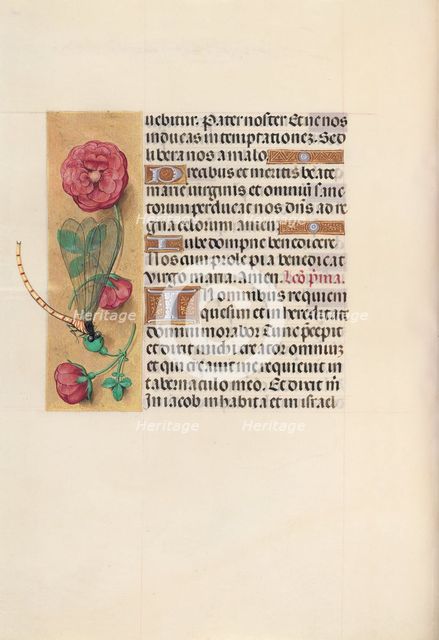 uebitur. Pater noster Et ne nos
inducas in temptationez. Sed
libera nos a malo.
Precibus et meritis beate
marie virginis et omniū sanc
torum perducat nos dn̄s ad re
gna celorum. Amen.
Iube dompne benedicere
Nos cum prole pia benedicat
virgo maria. Amen. Lcō p̄ma.
In omnibus requiem
quesiui et in hereditate
domini morabor Tunc precepit
et dixit michi creator omniuz
et qui creauit me requieuit in
tabernaculo meo. Et dixit m̄
In iacob inhabita et in israel
Heritage
Heritage
Heritage
Heritage
Heritage
Heritage